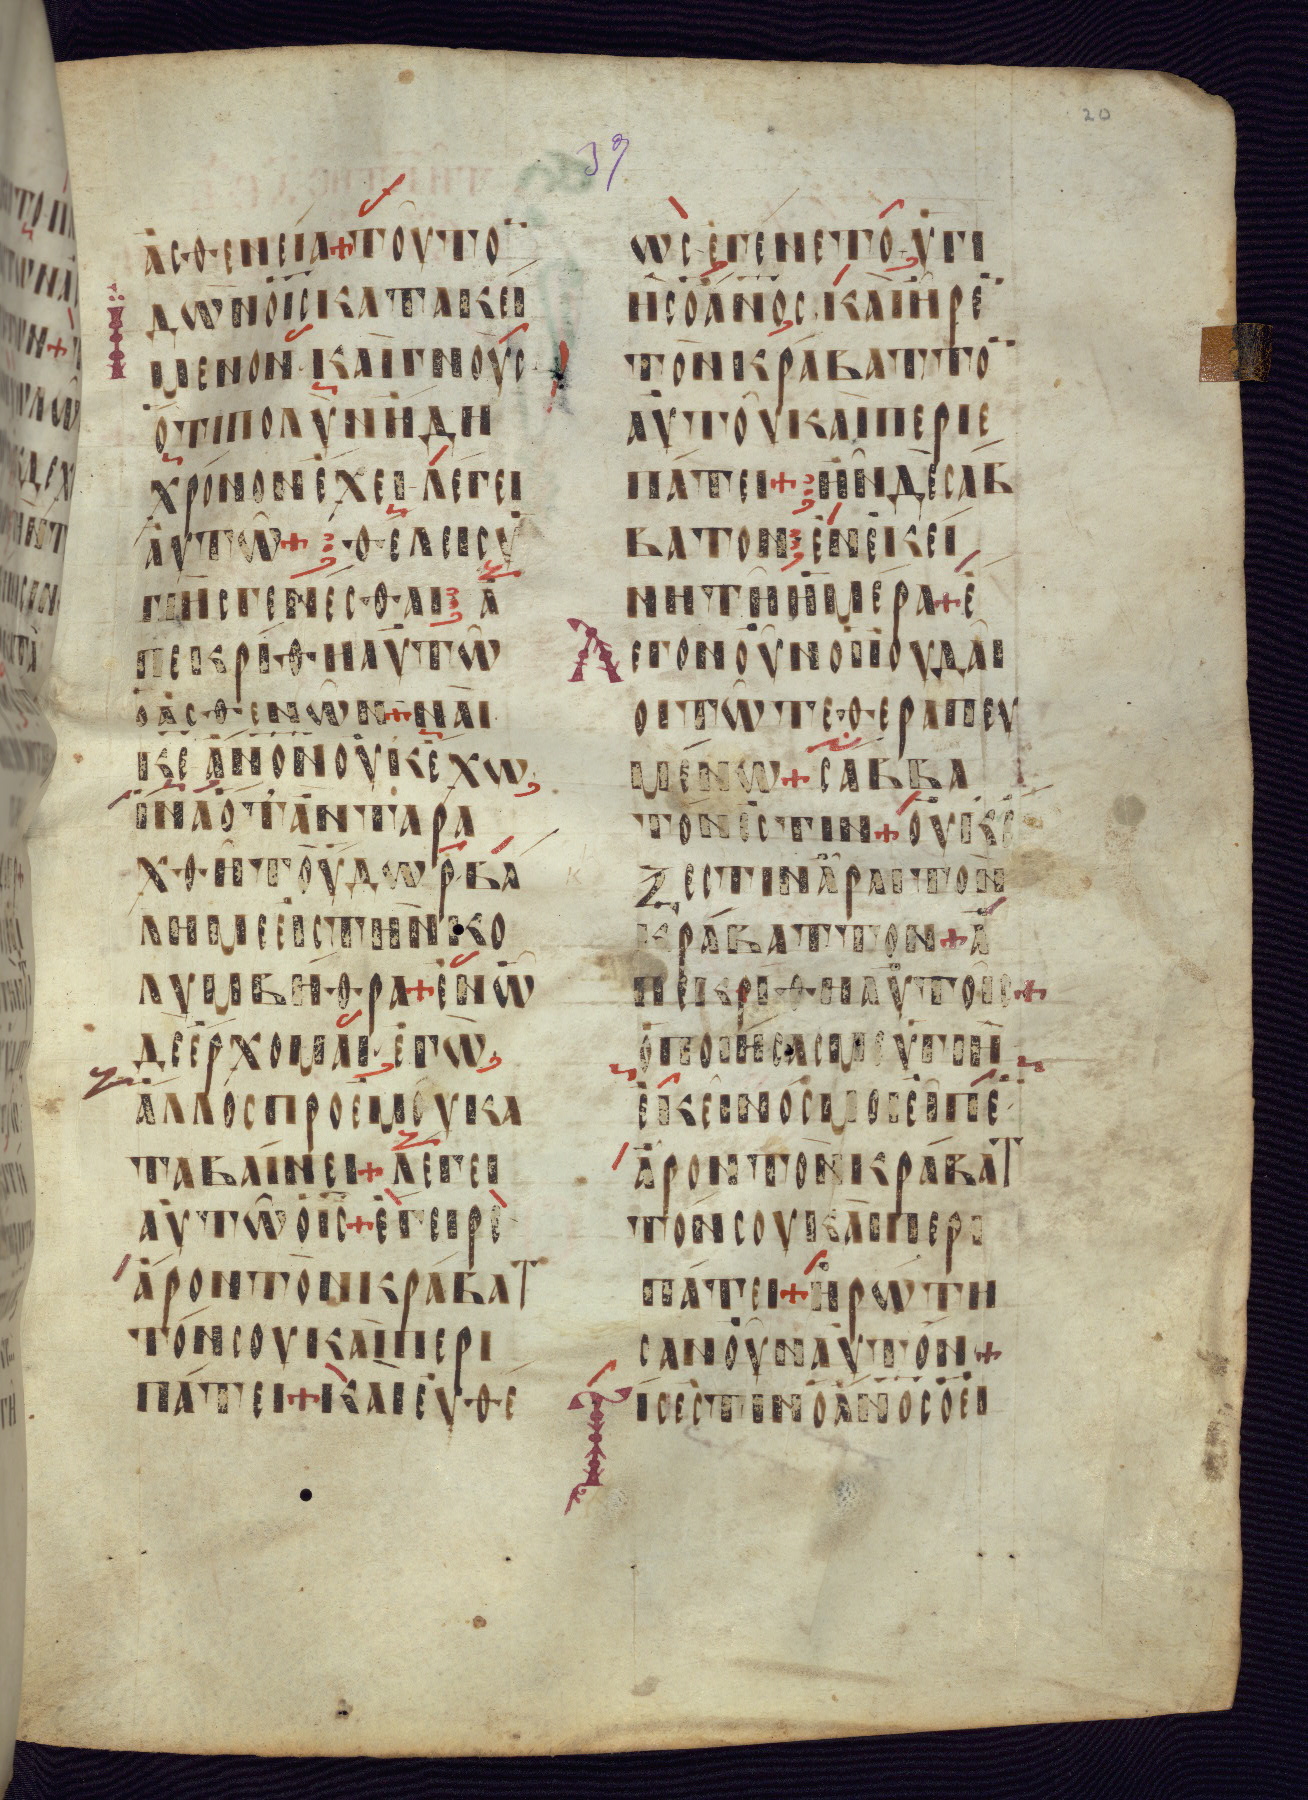 20
39
ἀσθενεία + τοῦτο̄
ἰδὼν ὁ ι̅ς̅ κατακεί
μενον· καὶ γνοὺς
ὅτι πολὺν ἤδη
χρόνον ἔχει· λέγει
αὐτῶ + θέλεις ὑ
γιὴς γενέσθαι ἀ
πεκρίθη αὐτῶ
ὁ ἀσθενῶν + ναὶ
κ̅ε̅ α̅ν̅ο̅ν̅ οὐκ ἔχω
ἵνα ὅταν ταρα
χθῆ τὸ ὕδωρ βά
λη με εἰς τὴν κο
λυμβήθρα + ἐν ὧ
δὲ ἔρχομαι ἐγὼ
ἄλλος πρὸ ἐμοῦ κα
ταβαίνει + λέγει
αὐτῶ ὁ ι̅ς̅ + ἔγειρε
ἆρον τὸν κράβατ
τόν σου καὶ περι
πάτει + καὶ εὐθέ
ως ἐγένετο ὑγι
ὴς ὁ α̅ν̅ο̅ς̅ καὶ ἦρε
τὸν κράβαττο̄
αὐτοῦ καὶ περιε
πάτει + ἦν δὲ σάβ
βατον ἐν ἐκεί
νη τῆ ἡμέρα + ἔ
Λεγον οὖν οἱ ἰουδαῖ
οι τῶ τεθεραπευ
μένω + σάββα
τόν ἐστιν + οὐκ ἔ
ξεστιν ἆραι τὸν
κράβαττον + ἀ
πεκρίθη αὐτοῖς +
ὁ ποιήσας με ὑγιῆ
ἐκεῖνός μοι εἶπε
ἆρον τὸν κράβατ
τόν σου καὶ περι
πάτει + ἠρώτη
σαν οὖν αὐτόν +
Τίς ἐστιν ὁ α̅ν̅ο̅ς̅ ὁ εἰ